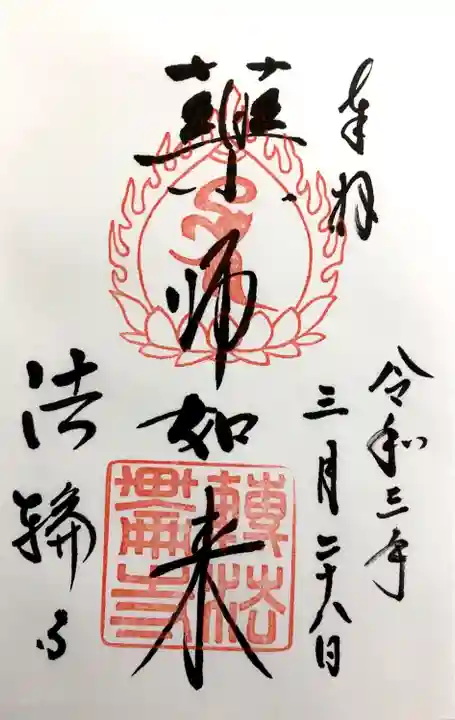 奉拝
令和三年
三月二十八日
薬师如来
法輪寺